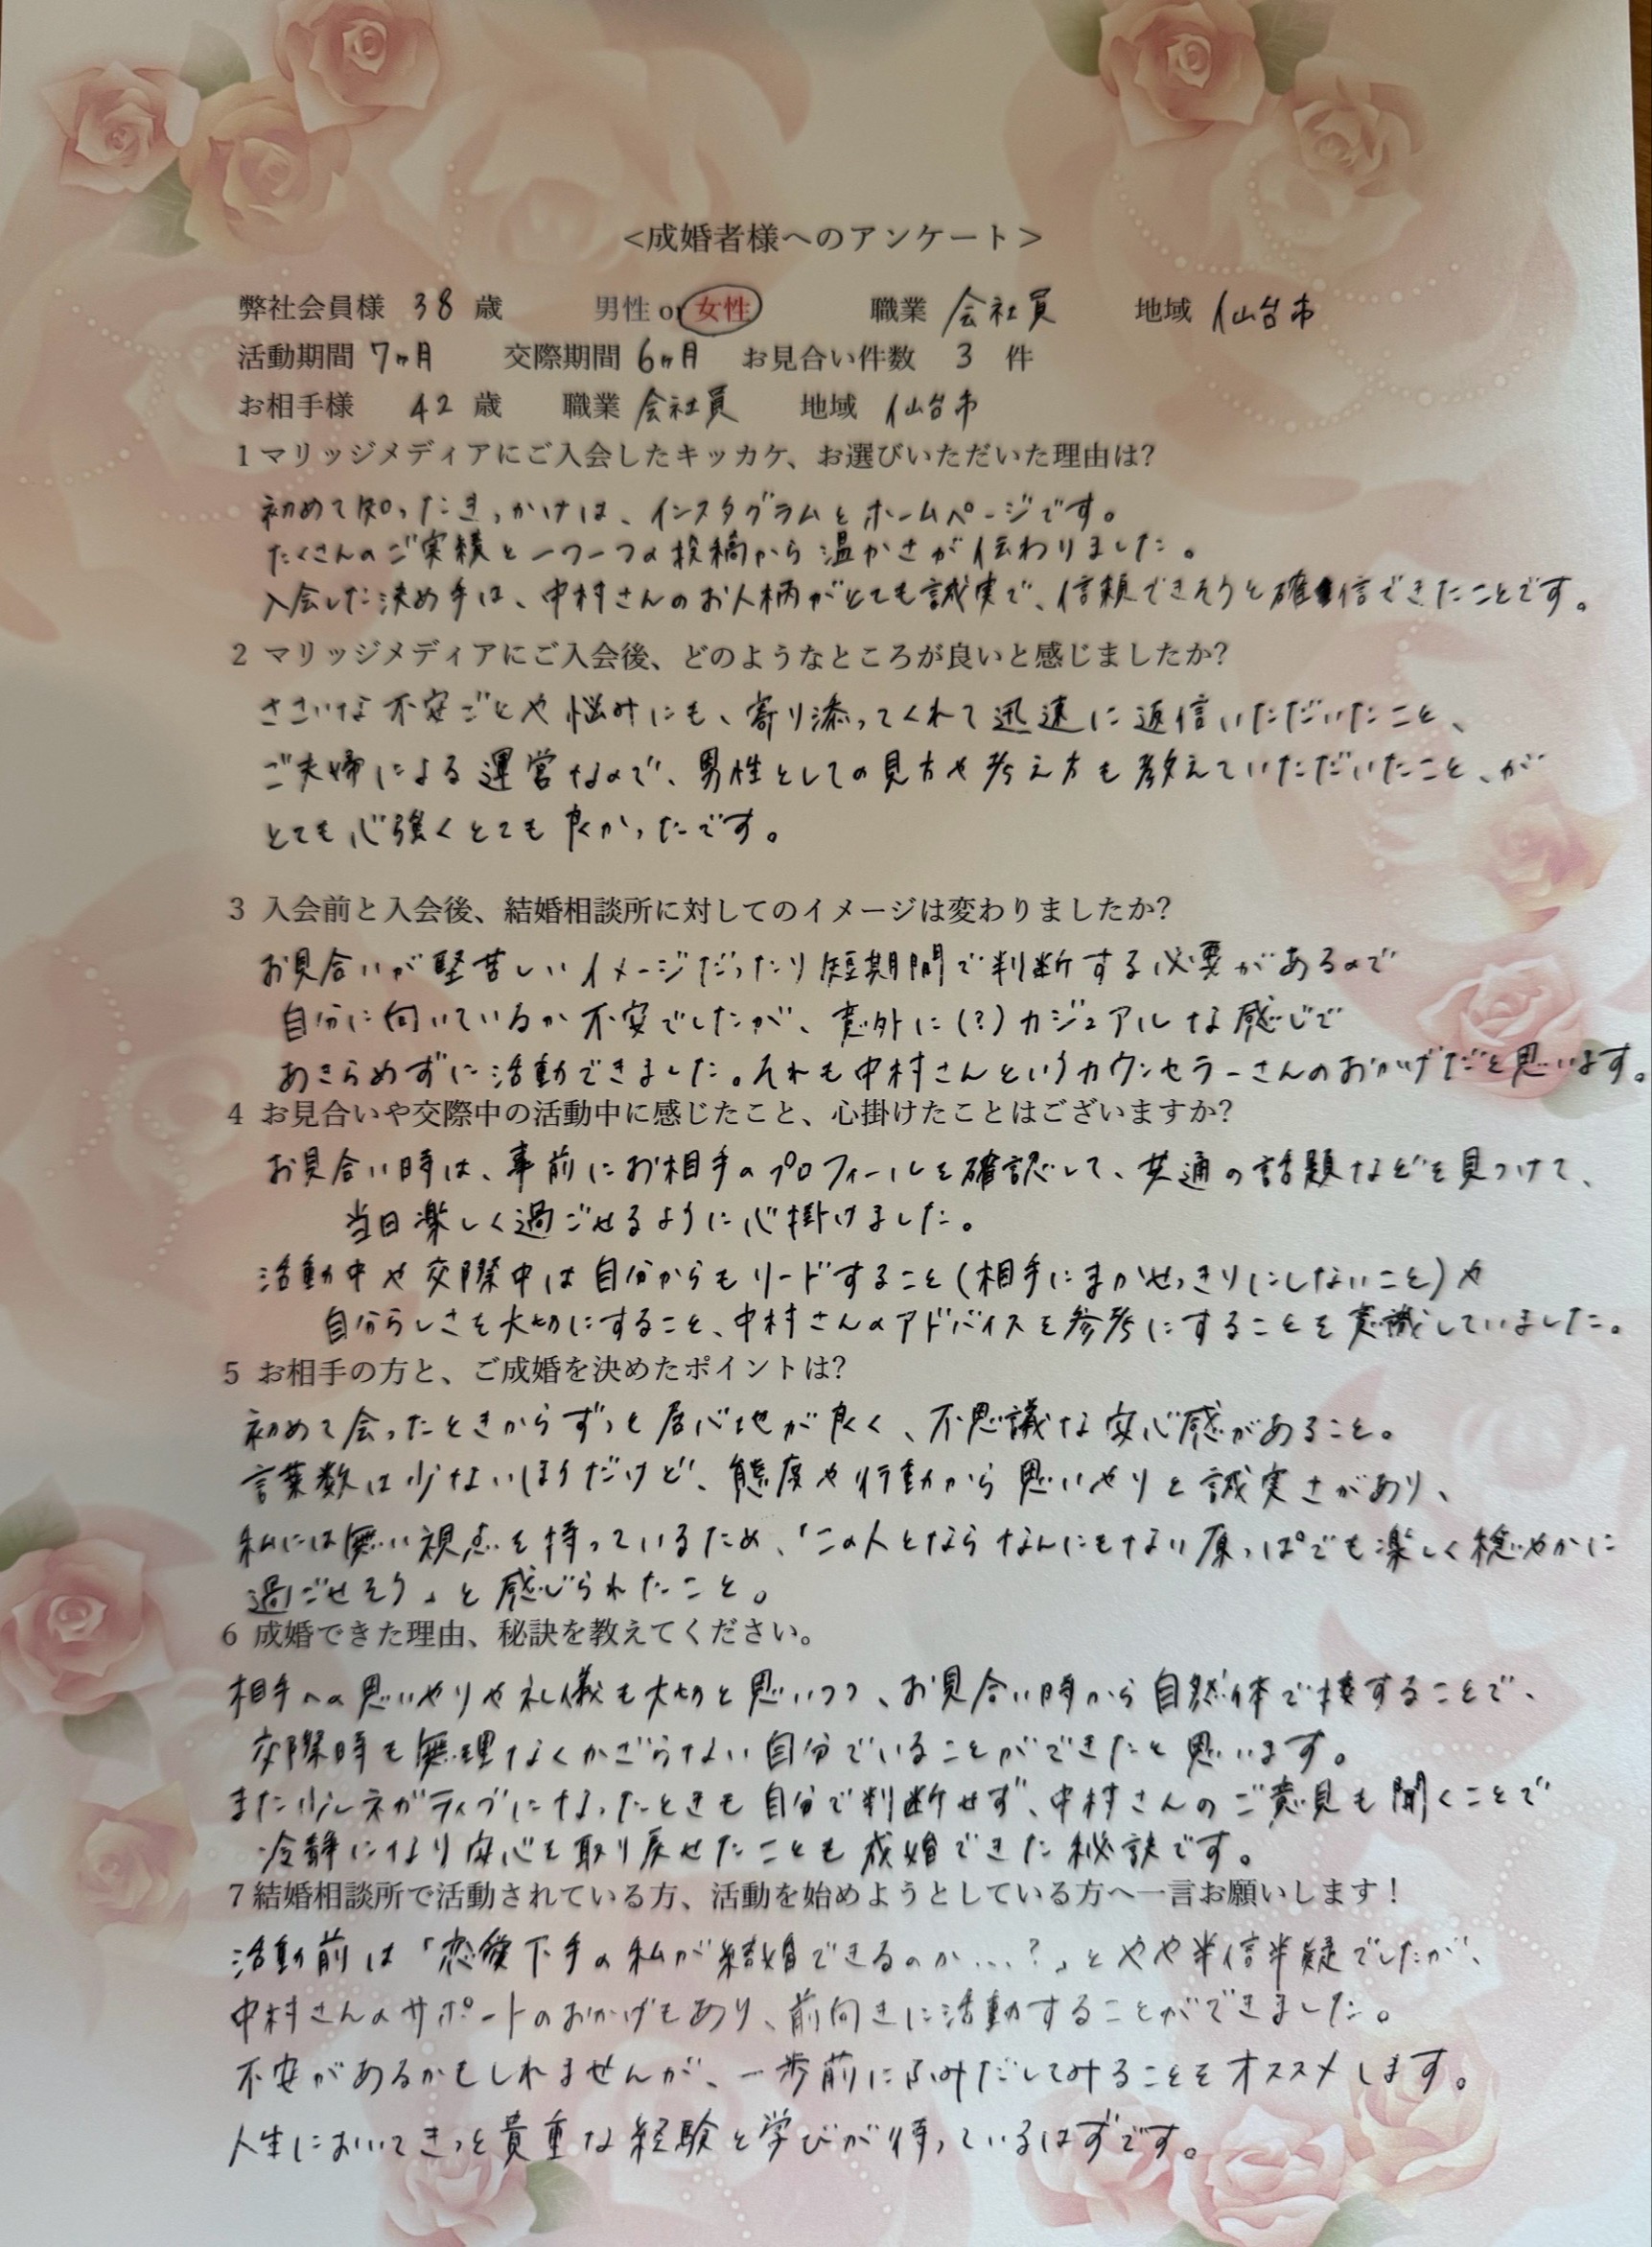 <成婚者様へのアンケート>
弊社会員様 38 歳 男性 or 女性 職業 会社員 地域 仙台市
活動期間 7ヶ月 交際期間 6ヶ月 お見合い件数 3 件
お相手様 42 歳 職業 会社員 地域 仙台市
1 マリッジメディアにご入会したキッカケ、お選びいただいた理由は?
初めて知ったきっかけは、インスタグラムとホームページです。
たくさんのご実績と一つ一つの投稿から温かさが伝わりました。
入会した決め手は、中村さんのお人柄がとても誠実で、信頼できそうと確信できたことです。
2 マリッジメディアにご入会後、どのようなところが良いと感じましたか?
ささいな不安ごとや悩みにも、寄り添ってくれて迅速に返信いただいたこと、
ご夫婦による運営なので、男性としての見方や考え方も教えていただいたこと、が
とても心強くとても良かったです。
3 入会前と入会後、結婚相談所に対してのイメージは変わりましたか?
お見合いが堅苦しいイメージだったり短期間で判断する必要があるので
自分に向いているか不安でしたが、意外に(?)カジュアルな感じで
あきらめずに活動できました。それも中村さんというカウンセラーさんのおかげだと思います。
4 お見合いや交際中の活動中に感じたこと、心掛けたことはございますか?
お見合い時は、事前にお相手のプロフィールを確認して、共通の話題などを見つけて、
当日楽しく過ごせるように心掛けました。
活動中や交際中は自分からもリードすること(相手にまかせっきりにしないこと)や
自分らしさを大切にすること、中村さんのアドバイスを参考にすることを意識していました。
5 お相手の方と、ご成婚を決めたポイントは?
初めて会ったときからずっと居心地が良く、不思議な安心感があること。
言葉数は少ないほうだけど、態度や行動から思いやりと誠実さがあり、
私には無い視点を持っているため、「この人とならなんにもない原っぱでも楽しく穏やかに
過ごせそう」と感じられたこと。
6 成婚できた理由、秘訣を教えてください。
相手への思いやりや礼儀も大切と思いつつ、お見合い時から自然体で接することで、
交際時も無理なくかざらない自分でいることができたと思います。
また少しネガティブになったときも自分で判断せず、中村さんのご意見も聞くことで
冷静になり安心を取り戻せたことも成婚できた秘訣です。
7 結婚相談所で活動されている方、活動を始めようとしている方へ一言お願いします!
活動前は「恋愛下手の私が結婚できるのか...?」とやや半信半疑でしたが、
中村さんのサポートのおかげもあり、前向きに活動することができました。
不安があるかもしれませんが、一歩前にふみだしてみることをオススメします。
人生においてきっと貴重な経験と学びが待っているはずです。